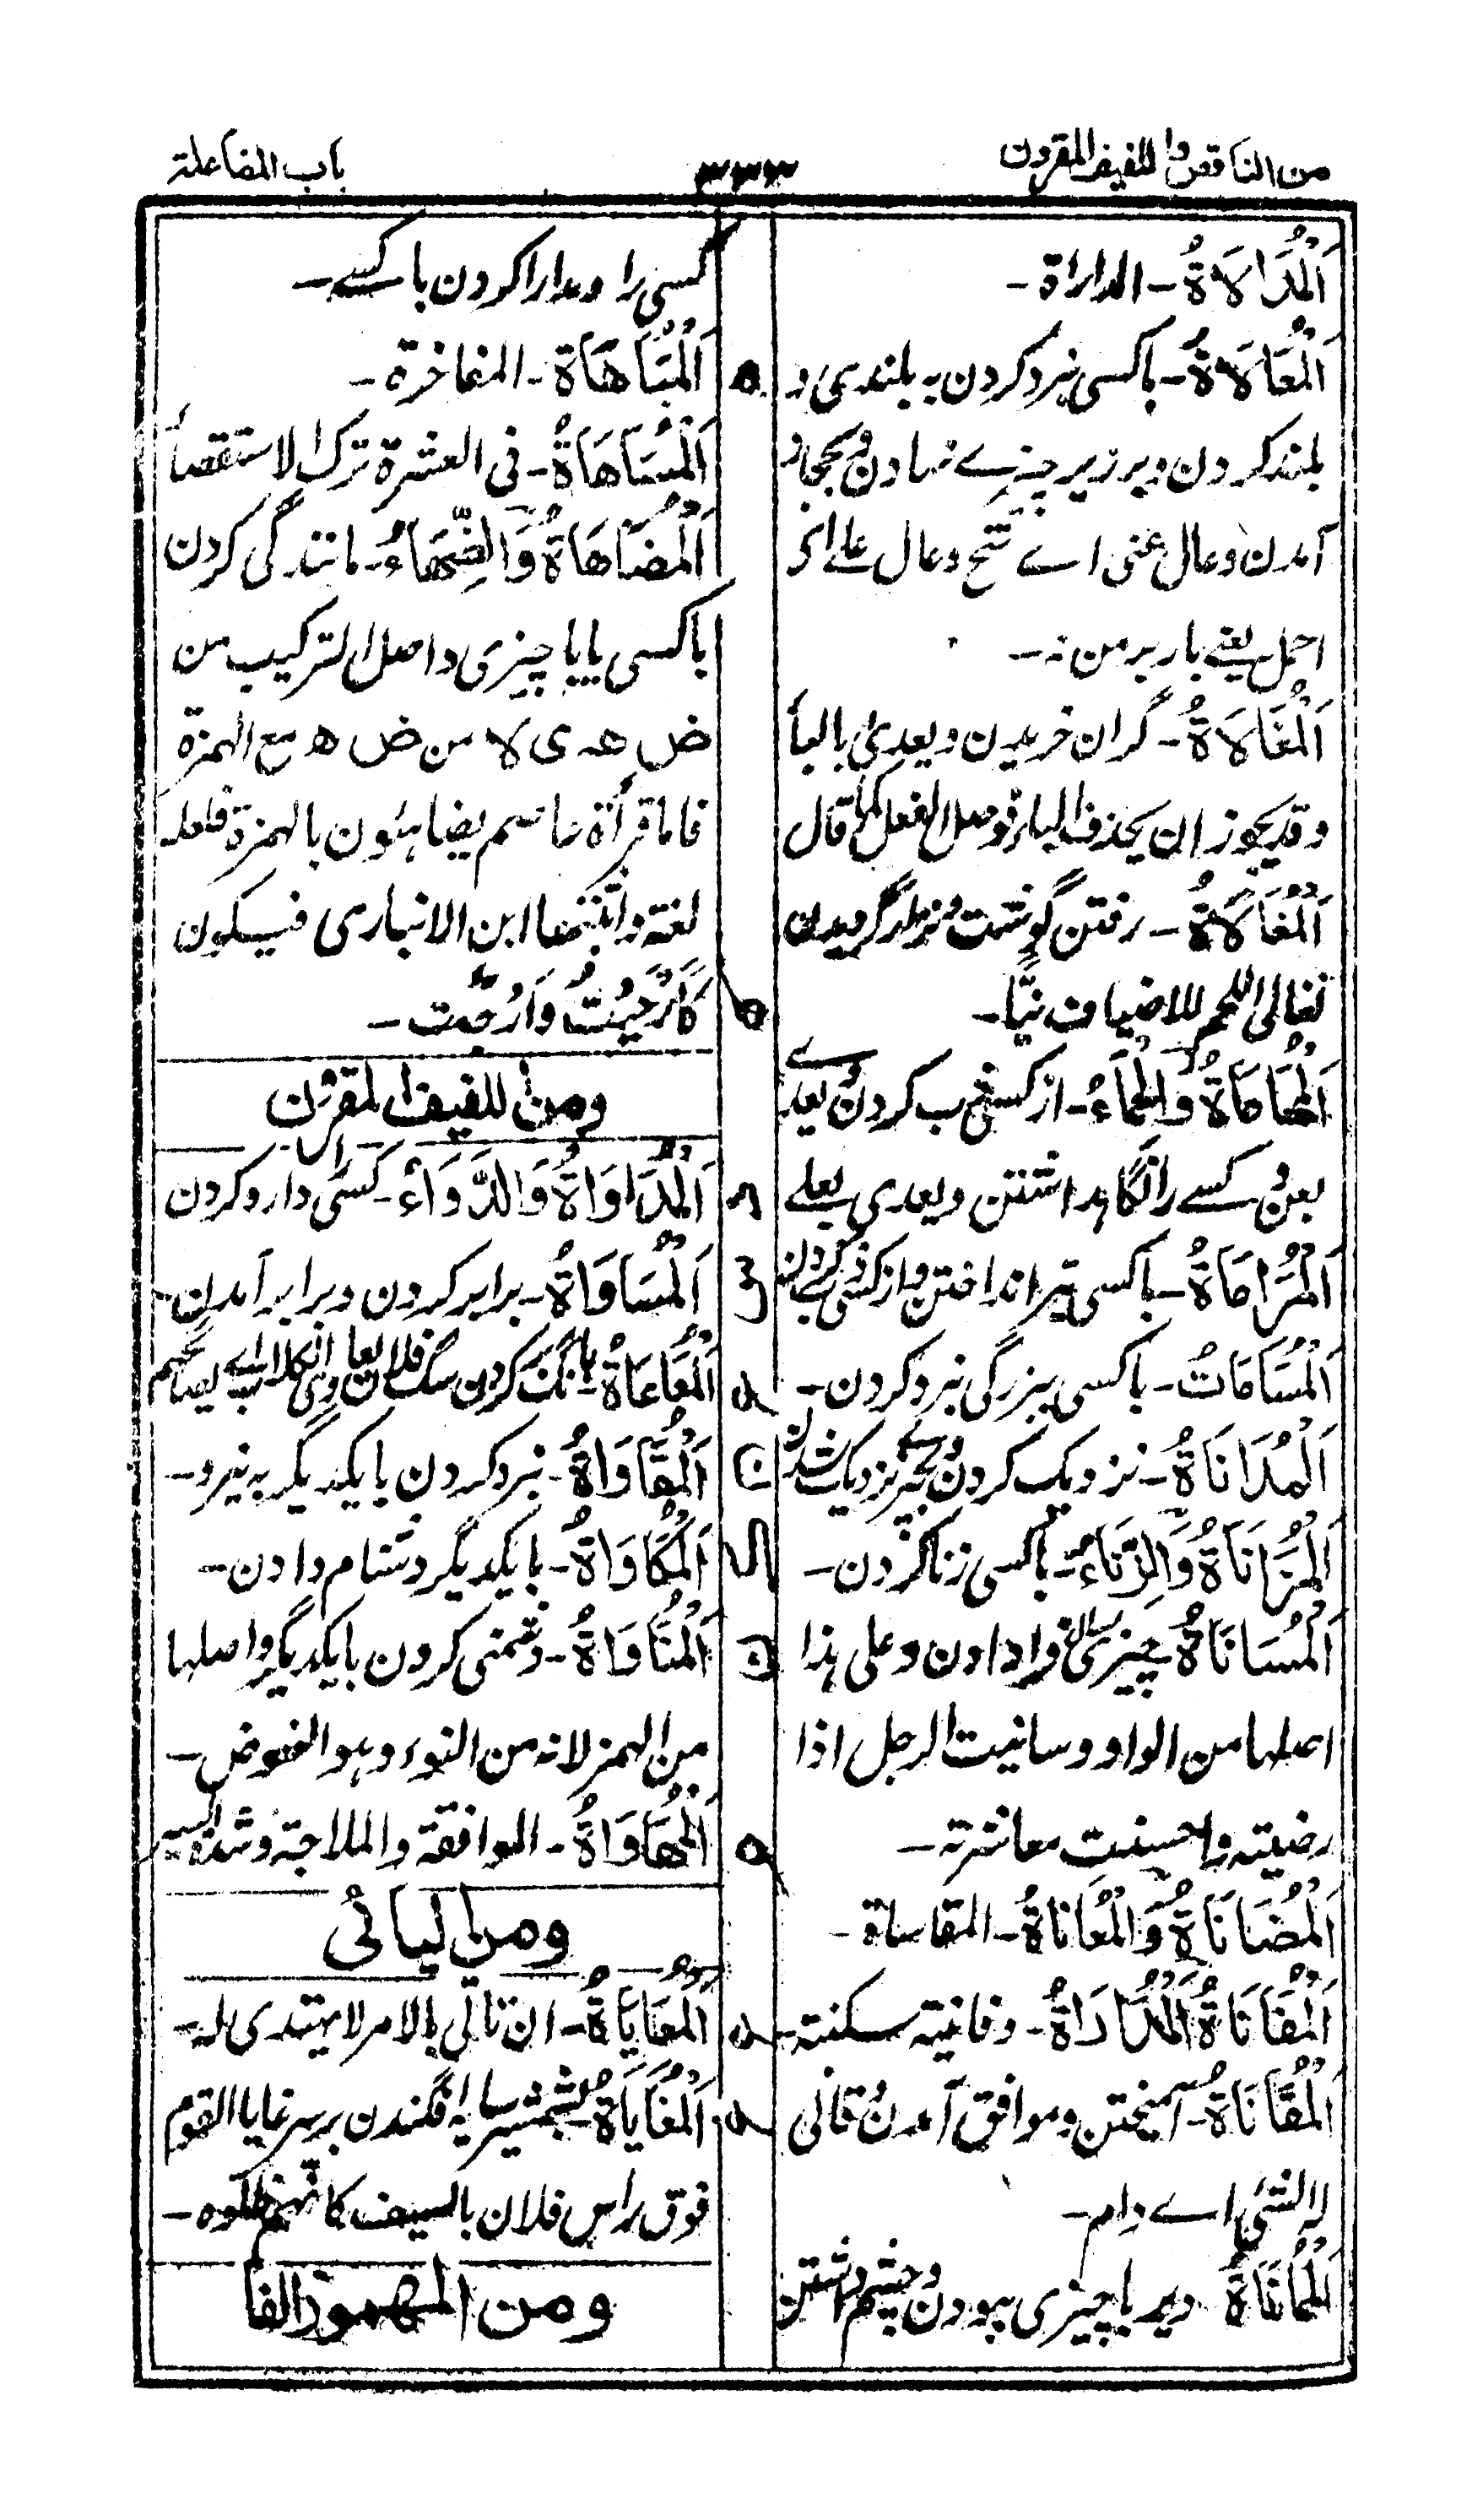 من الناقص واللفيف المقرون
٣٣٣
باب المفاعلة
اَلْمُدَالَاةُ - المداراة -
اَلْمُعَالَاةُ - باکسی نبرد کردن به بلندی و
بلند کردن وبر زبر چیزے نهادن و بحجاز
آمدن وعال عنی اے تنح وعال علی اے
احمل یعنے بار بر من نه -
اَلْمُغَالَاةُ - گران خریدن ویعدی بالباء
وقد یجوز ان یحذف الباء فوصل الفعل کما قال
نغالی اللحم للاضیاف نیًّا -
اَلْمُفَالَاةُ - رفتن گوشت
اَلْمُحَامَاةُ وَالْحِمَاءُ - از کسی کردن یعدے
بعن و کسے را نگاہداشتن ویعدی بعلے
اَلْمُرَامَاةُ - باکسی تیر انداختن واز کسی
اَلْمُسَامَاتُ - باکسی ببزرگی نبرد کردن -
اَلْمُدَانَاةُ - نزدیک کردن نزدیک شدن
اَلْمُزَانَاةُ وَالزِّنَاءُ - باکسی زنا کردن -
اَلْمُسَانَاةُ - چیزی فرا دادن وعلی هذا
اصلها من الواو وسانیت الرجل اذا
رضیته واحسنت معاشرته -
اَلْمُضَانَاةُ وَالْمُعَانَاةُ - المقاساة -
اَلْمُفَانَاةُ اَلْمُدَارَاةُ - وفانیته سکنته -
اَلْمُقَانَاةُ - آمیختن وموافق آمدن قانی
له الشئ اے دام -
اَلْمُمَانَاةُ دیر باچیزی ببودن وچشم داشتن
کسی را ومدارا کردن باکسے -
اَلْمُبَاهَاةُ - المفاخرة -
اَلْمُسَاهَاةُ - فی العشرة ترک الاستقصاء
اَلْمُضَاهَاةُ وَالضِّهَاءُ - مانندگی کردن
باکسی یا باچیزی واصل الترکیب من
ض ه ی لا من ض ه مع الهمزة
فاما قرأة عاصم یضاهئون بالهمزة فلعله
لغة واثبتها ابن الانباری فیکون
کَاَرْجَیْتُ وَاَرْجَئْت -
ومن اللفیف المقرون
اَلْمُدَاوَاةُ وَالدِّوَاءُ - کسی را دارو کردن
اَلْمُسَاوَاةُ - برابر کردن وبرابر آمدن -
اَلْمُعَاعَاةُ - بانگ کردن سگ فلان یعاوی الکلاب اے یصایحهم
اَلْمُقَاوَاةُ - نبرد کردن بایکدیگر به نیرو -
اَلْمُکَاوَاةُ - بایکدیگر دشنام دادن -
اَلْمُنَاوَاةُ - دشمنی کردن بایکدیگر واصلها
من الهمز لانه من النوء وهو النهوض -
اَلْمُهَاوَاةُ - الموافقة والملاجة وشدة السیر
ومن الیائی
اَلْمُعَایَاةُ - ان تأتی بالامر لا یهتدی له -
اَلْمُغَایَاةُ - بشمشیر سایه افگندن بر سر غایا القوم
فوق راس فلان بالسیف کانهم اظلوه -
ومن المهموز الفا